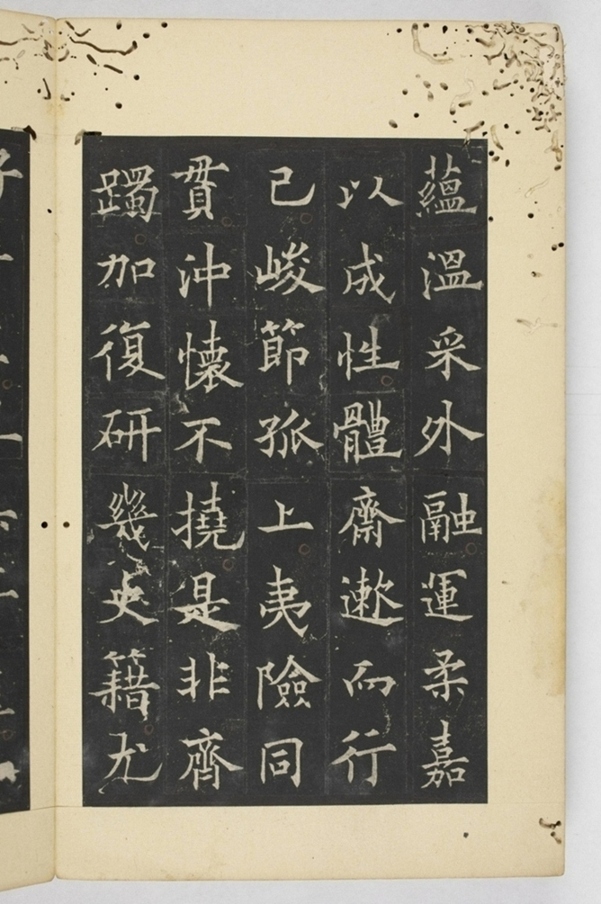 蘊溫采外融運柔嘉
以成性體齋遫而行
己峻節孤上夷險同
貫沖懷不撓是非齊
躅加復研幾史籍尤